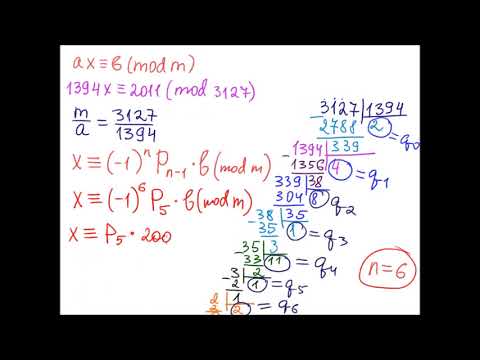 ax ≡ b (mod m)
1394x ≡ 2011 (mod 3127)
m/a = 3127/1394
x ≡ (-1)ⁿ Pₙ₋₁ · b (mod m)
x ≡ (-1)⁶ P₅ · b (mod m)
x ≡ P₅ · 200
3127 | 1394
- 2788 | 2 = q₀
1394 | 339
- 1356 | 4 = q₁
339 | 38
304 | 8 = q₂
- 38 | 35
35 | 1 = q₃
35 | 3
- 33 | 11 = q₄
- 3 | 2
2 | 1 = q₅
2 | 1
2 | 2 = q₆
n=6